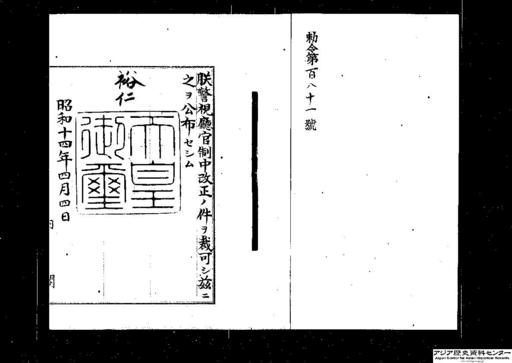 勅令第百八十一號
朕警視廳官制中改正ノ件ヲ裁可シ茲ニ
之ヲ公布セシム
裕仁
天皇御璽
昭和十四年四月四日
内閣
アジア歴史資料センター
Japan Center for Asian Historical Records